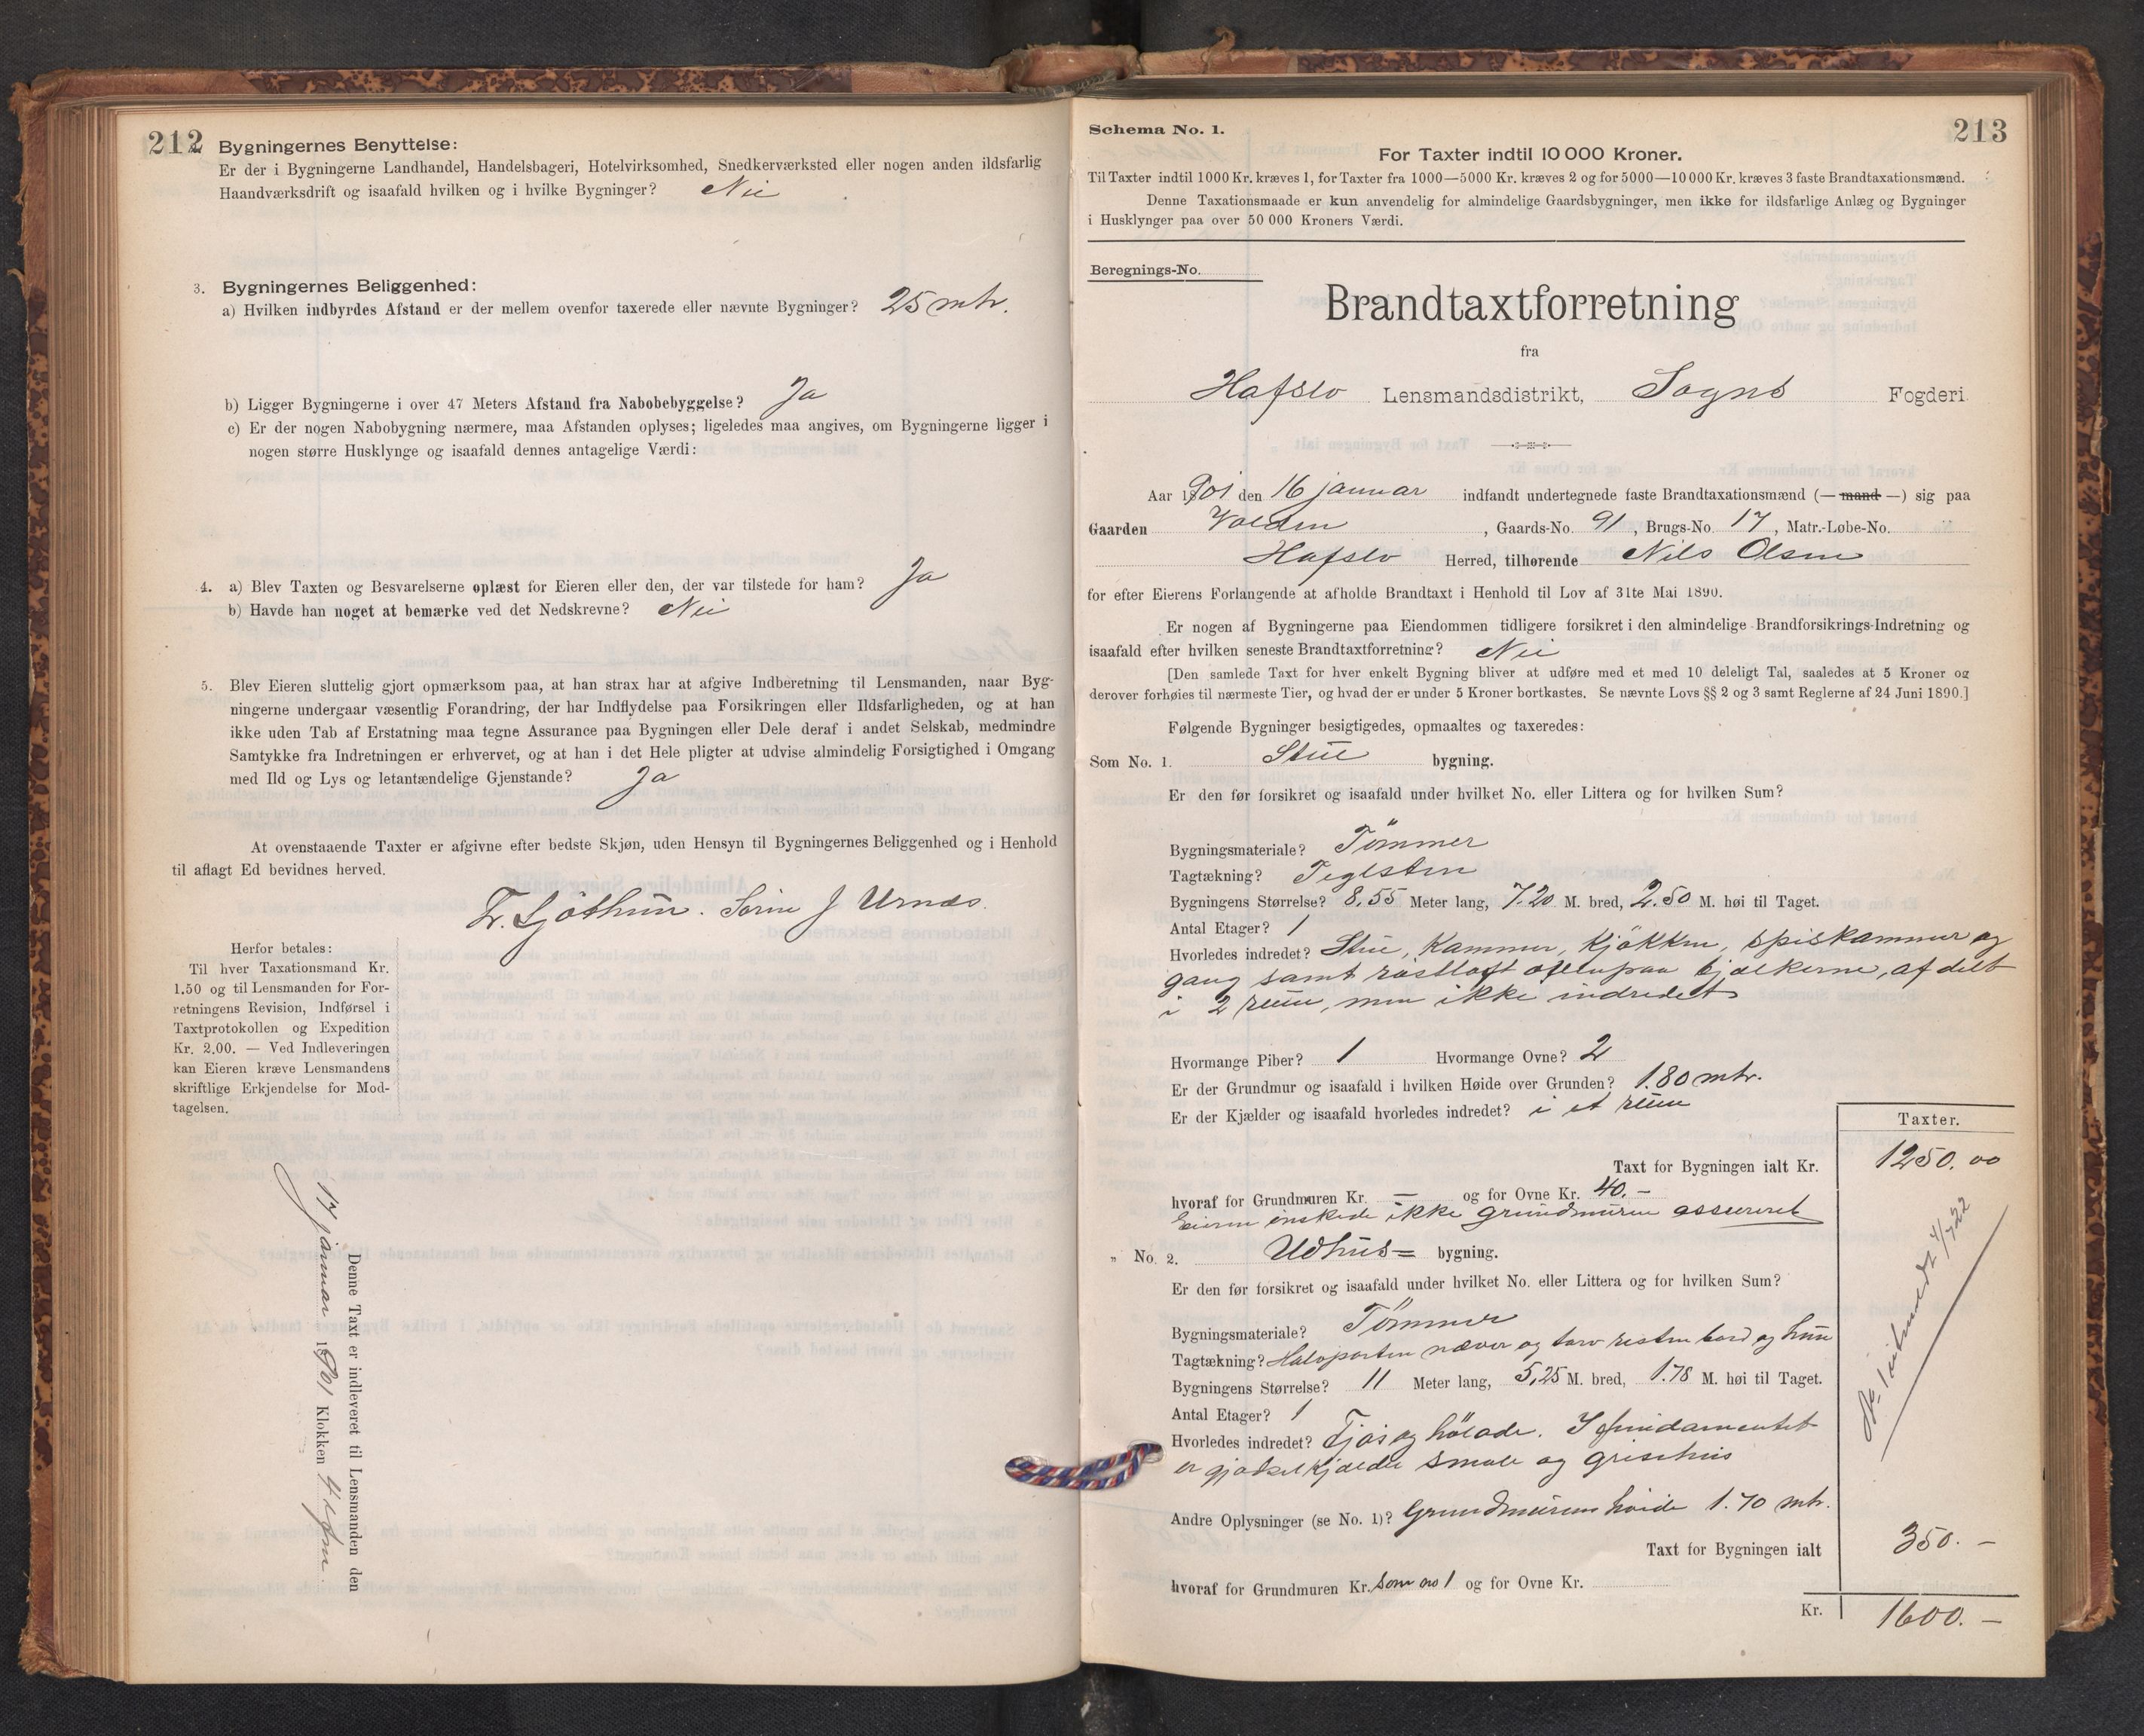 212
Bygningernes Benyttelse:
Er der i Bygningerne Landhandel, Handelsbageri, Hotelvirksomhed, Snedkerværksted eller nogen anden ildsfarlig
Haandværksdrift og isaafald hvilken og i hvilke Bygninger? Nei
3. Bygningernes Beliggenhed:
a) Hvilken indbyrdes Afstand er der mellem ovenfor taxerede eller nævnte Bygninger? 25 mtr.
b) Ligger Bygningerne i over 47 Meters Afstand fra Nabobebyggelse? Ja
c) Er der nogen Nabobygning nærmere, maa Afstanden oplyses; ligeledes maa angives, om Bygningerne ligger i
nogen større Husklynge og isaafald dennes antagelige Værdi:
4. a) Blev Taxten og Besvarelserne oplæst for Eieren eller den, der var tilstede for ham? Ja
b) Havde han noget at bemærke ved det Nedskrevne? Nei
5. Blev Eieren sluttelig gjort opmærksom paa, at han strax har at afgive Indberetning til Lensmanden, naar Byg-
ningerne undergaar væsentlig Forandring, der har Indflydelse paa Forsikringen eller Ildsfarligheden, og at han
ikke uden Tab af Erstatning maa tegne Assurance paa Bygningen eller Dele deraf i andet Selskab, medmindre
Samtykke fra Indretningen er erhvervet, og at han i det Hele pligter at udvise almindelig Forsigtighed i Omgang
med Ild og Lys og letantændelige Gjenstande? Ja
At ovenstaaende Taxter er afgivne efter bedste Skjøn, uden Hensyn til Bygningernes Beliggenhed og i Henhold
til aflagt Ed bevidnes herved.
Sjøthun. J Urnæs.
Herfor betales:
Til hver Taxationsmand Kr.
1.50 og til Lensmanden for For-
retningens Revision, Indførsel i
Taxtprotokollen og Expedition
Kr. 2.00. — Ved Indleveringen
kan Eieren kræve Lensmandens
skriftlige Erkjendelse for Mod-
tagelsen.
Denne Taxt er indleveret til Lensmanden den
17 januar 1901 Klokken 4
213
Schema No. 1.
For Taxter indtil 10 000 Kroner.
Til Taxter indtil 1000 Kr. kræves 1, for Taxter fra 1000—5000 Kr. kræves 2 og for 5000—10 000 Kr. kræves 3 faste Brandtaxationsmænd.
Denne Taxationsmaade er kun anvendelig for almindelige Gaardsbygninger, men ikke for ildsfarlige Anlæg og Bygninger
i Husklynger paa over 50 000 Kroners Værdi.
Beregnings-No.
Brandtaxtforretning
fra
Hafslo Lensmandsdistrikt, Sogns Fogderi
Aar 1901 den 16 januar indfandt undertegnede faste Brandtaxationsmænd (— mand —) sig paa
Gaarden Volden, Gaards-No. 91, Brugs-No. 17, Matr.-Løbe-No.
Hafslo Herred, tilhørende Nils Olsen
for efter Eierens Forlangende at afholde Brandtaxt i Henhold til Lov af 31te Mai 1890.
Er nogen af Bygningerne paa Eiendommen tidligere forsikret i den almindelige Brandforsikrings-Indretning og
isaafald efter hvilken seneste Brandtaxtforretning? Nei
[Den samlede Taxt for hver enkelt Bygning bliver at udføre med et med 10 deleligt Tal, saaledes at 5 Kroner og
derover forhøies til nærmeste Tier, og hvad der er under 5 Kroner bortkastes. Se nævnte Lovs §§ 2 og 3 samt Reglerne af 24 Juni 1890.]
Følgende Bygninger besigtigedes, opmaaltes og taxeredes:
Som No. 1. Stue bygning.
Er den før forsikret og isaafald under hvilket No. eller Littera og for hvilken Sum?
Bygningsmateriale? Tømmer
Tagtækning? Teglsten
Bygningens Størrelse? 8,55 Meter lang, 7.20 M. bred, 2.50 M. høi til Taget.
Antal Etager? 1
Hvorledes indredet? Stue, Kammer, Kjøkken, Spiskammer og
gang samt røstloft bjelkerne, af delt
i 2 rum, men ikke indredet
Hvormange Piber? 1 Hvormange Ovne? 2
Er der Grundmur og isaafald i hvilken Høide over Grunden? 1.80 mtr.
Er der Kjælder og isaafald hvorledes indredet? i et rum
Taxter.
Taxt for Bygningen ialt Kr. 1250.00
hvoraf for Grundmuren Kr. — og for Ovne Kr. 40.-
Eieren ønskede ikke grundmuren assureret
„ No. 2. Udhus= bygning.
Er den før forsikret og isaafald under hvilket No. eller Littera og for hvilken Sum?
Bygningsmateriale? Tømmer
Tagtækning? Halvparten næver og torv resten bord og hun
Bygningens Størrelse? 11 Meter lang, 5,25 M. bred, 1.78 M. høi til Taget.
Antal Etager? 1
Hvorledes indredet? Fjøs og hølade. I fundamentet
er gjødselkjælder smale og grisehus
Andre Oplysninger (se No. 1)? Grundmurens høide 1.70 mtr.
Taxt for Bygningen ialt 350.-
hvoraf for Grundmuren Kr. som no 1 og for Ovne Kr.
Kr. 1600.-